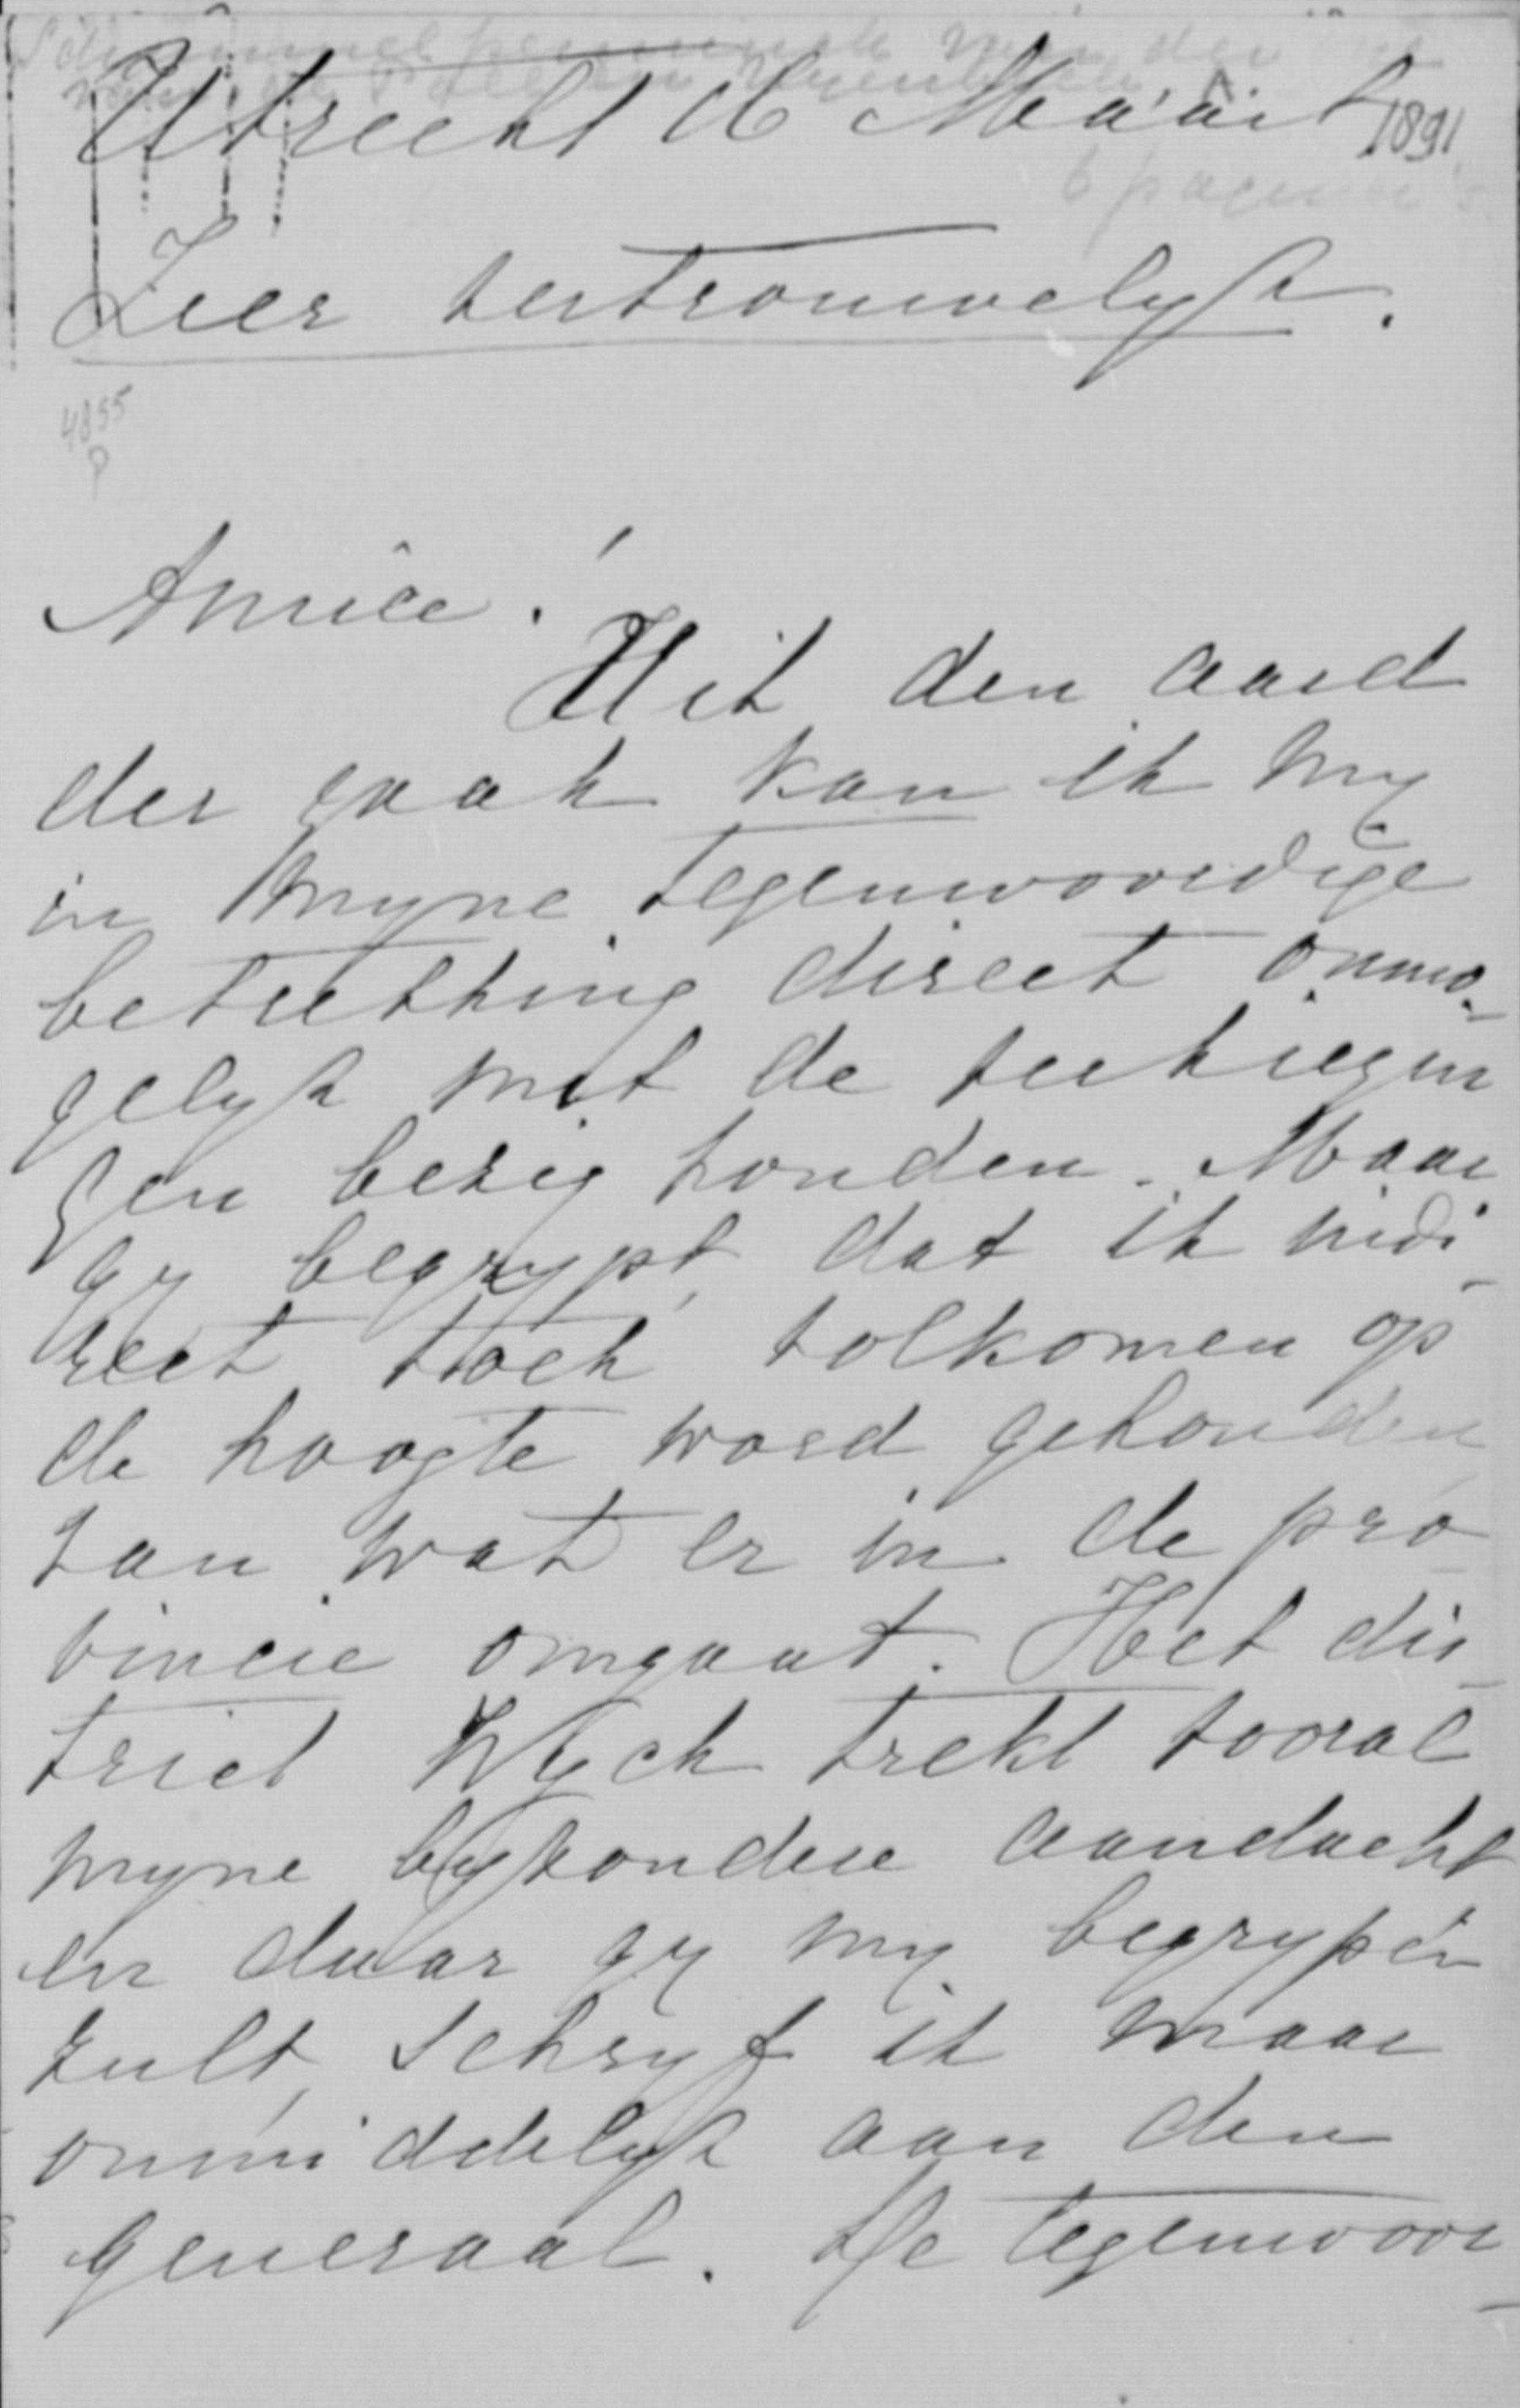 Utrecht 16 Maart
1891
6 pagina's
Zeer vertrouwelyk.
4855
P
Amice!
Uit den aard
der zaak kan ik my
in myne tegenwoordige
betrekking direct onmo-
gelyk met de verkiezin
gen bezig houden. Maar
gy begrypt, dat ik indi-
rect toch volkomen op
de hoogte word gehouden
van wat er in de pro-
vincie omgaat. Het dis-
trict Wyck trekt vooral
myne byzondere aandacht
en daar gy my begrypen
zult, schryf ik maar
onmiddelyk aan den
generaal. De tegenwoor-